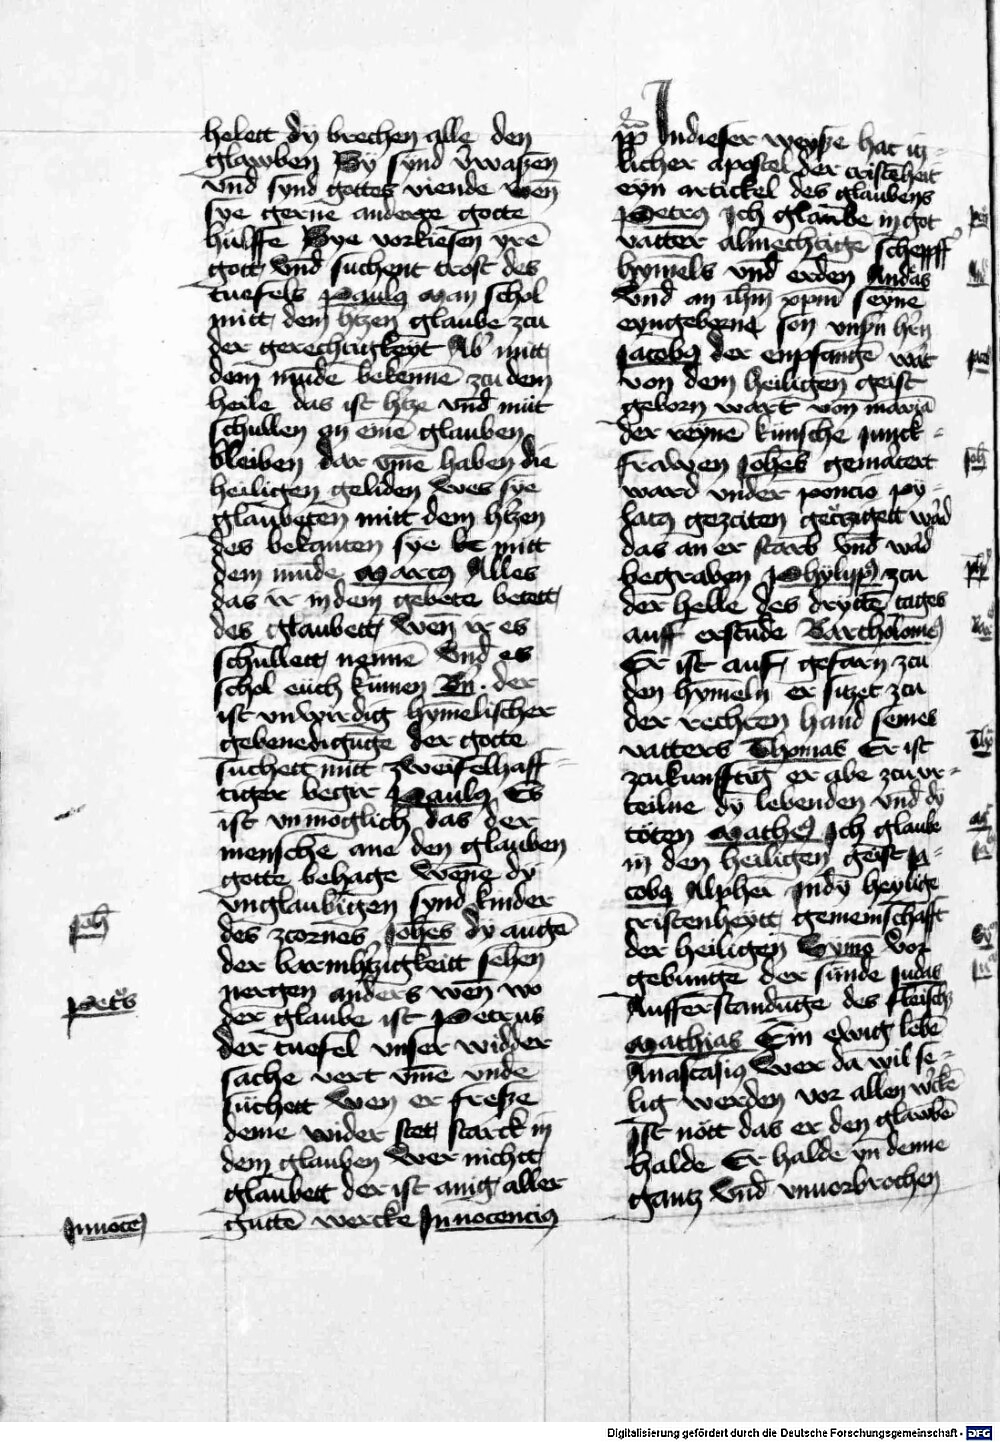 helett dy brechen alle den
glawben Sy synd vwaßen
vnd synd gottes viende wen
sye gerne anderge gotte
hulffe Sye vorkiesen yre
gott vnd suchent trost des
tuefels Paulus Man schol
mitt dem h'tzen glaube zcu
der gerechtigkeyt Ab' mitt
dem munde bekenne zcu dem
heile das ist h'tze vnd mut
schullen an eine glauben
bleiben dar vme haben die
heiligen geliden wes sye
glaubeten mitt dem h'tzen
des bekanten sye mitt
dem munde Marcus Alles
das ir in dem gebete betett
des glaubett wen ir es
schullett nenne vnd es
schol euch kumen Bn. der
ist vnwirdig hymelischer
gebenedigunge der gotte
suchett mitt zweifelhaff=
tiger begir Paulus Es
ist vnmoglich das der
mensche ane den glauben
gotte behage Wene dy
vnglaubigen synd kinder
des zcornes Johes dy augen
der barmh'tzigkeitt sehen
nergen anders wen wo
der glaube ist Petrus
der tuefel vnser widder
sache vert vme vnde
suchett wen er freße
deme wider stett starck in
dem glauben Wer nichtt
glaubett der ist anig aller
gutte wercke Innocencius
Joh
Petrus
Innoce
In dieser weyße hat itz=
licher apostel der cristeheit
eyn artickel des glaubens
Petrus Ich glaube in got
vatter almechtige scheppff'
hymels vnd erden Andras
Vnd an ihm xpm seyne
eyngeborne son vnsn h'rn
Jacobus der enpfange wart
von dem heiligen geist
geborn wart von maria
der reyne kunsche junck=
frawen Johes gematert
ward vnder poncio py=
latus gezciten gecrucigett ward
das an er starb vnd ward
begraben Phylippus zcu
der helle des drytte tages
auff erstunde Bartholomeus
Er ist auf gefarn zcu
den hymeln er sitzet zcu
der rechten hand seines
vatters Thomas Er ist
zcukunfftig er abe zcu vr=
teilne dy lebenden vnd dy
toten Matheus Ich glaube
in den heiligen geist Ja=
cobus Alphei In dy heylige
cristenheytt gemeinschafft
der heiligen Symon Vor
gebunge der sunde Judas
Aufferstandunge des fleisch
Mathias Ein ewig leben
Anastasius Wer da wil se=
lig werden vor allen
ist nott das er den glawben
halde Er halde yn denne
gantz vnd vnuorbrochen
Digitalisierung gefördert durch die Deutsche Forschungsgemeinschaft - DFG